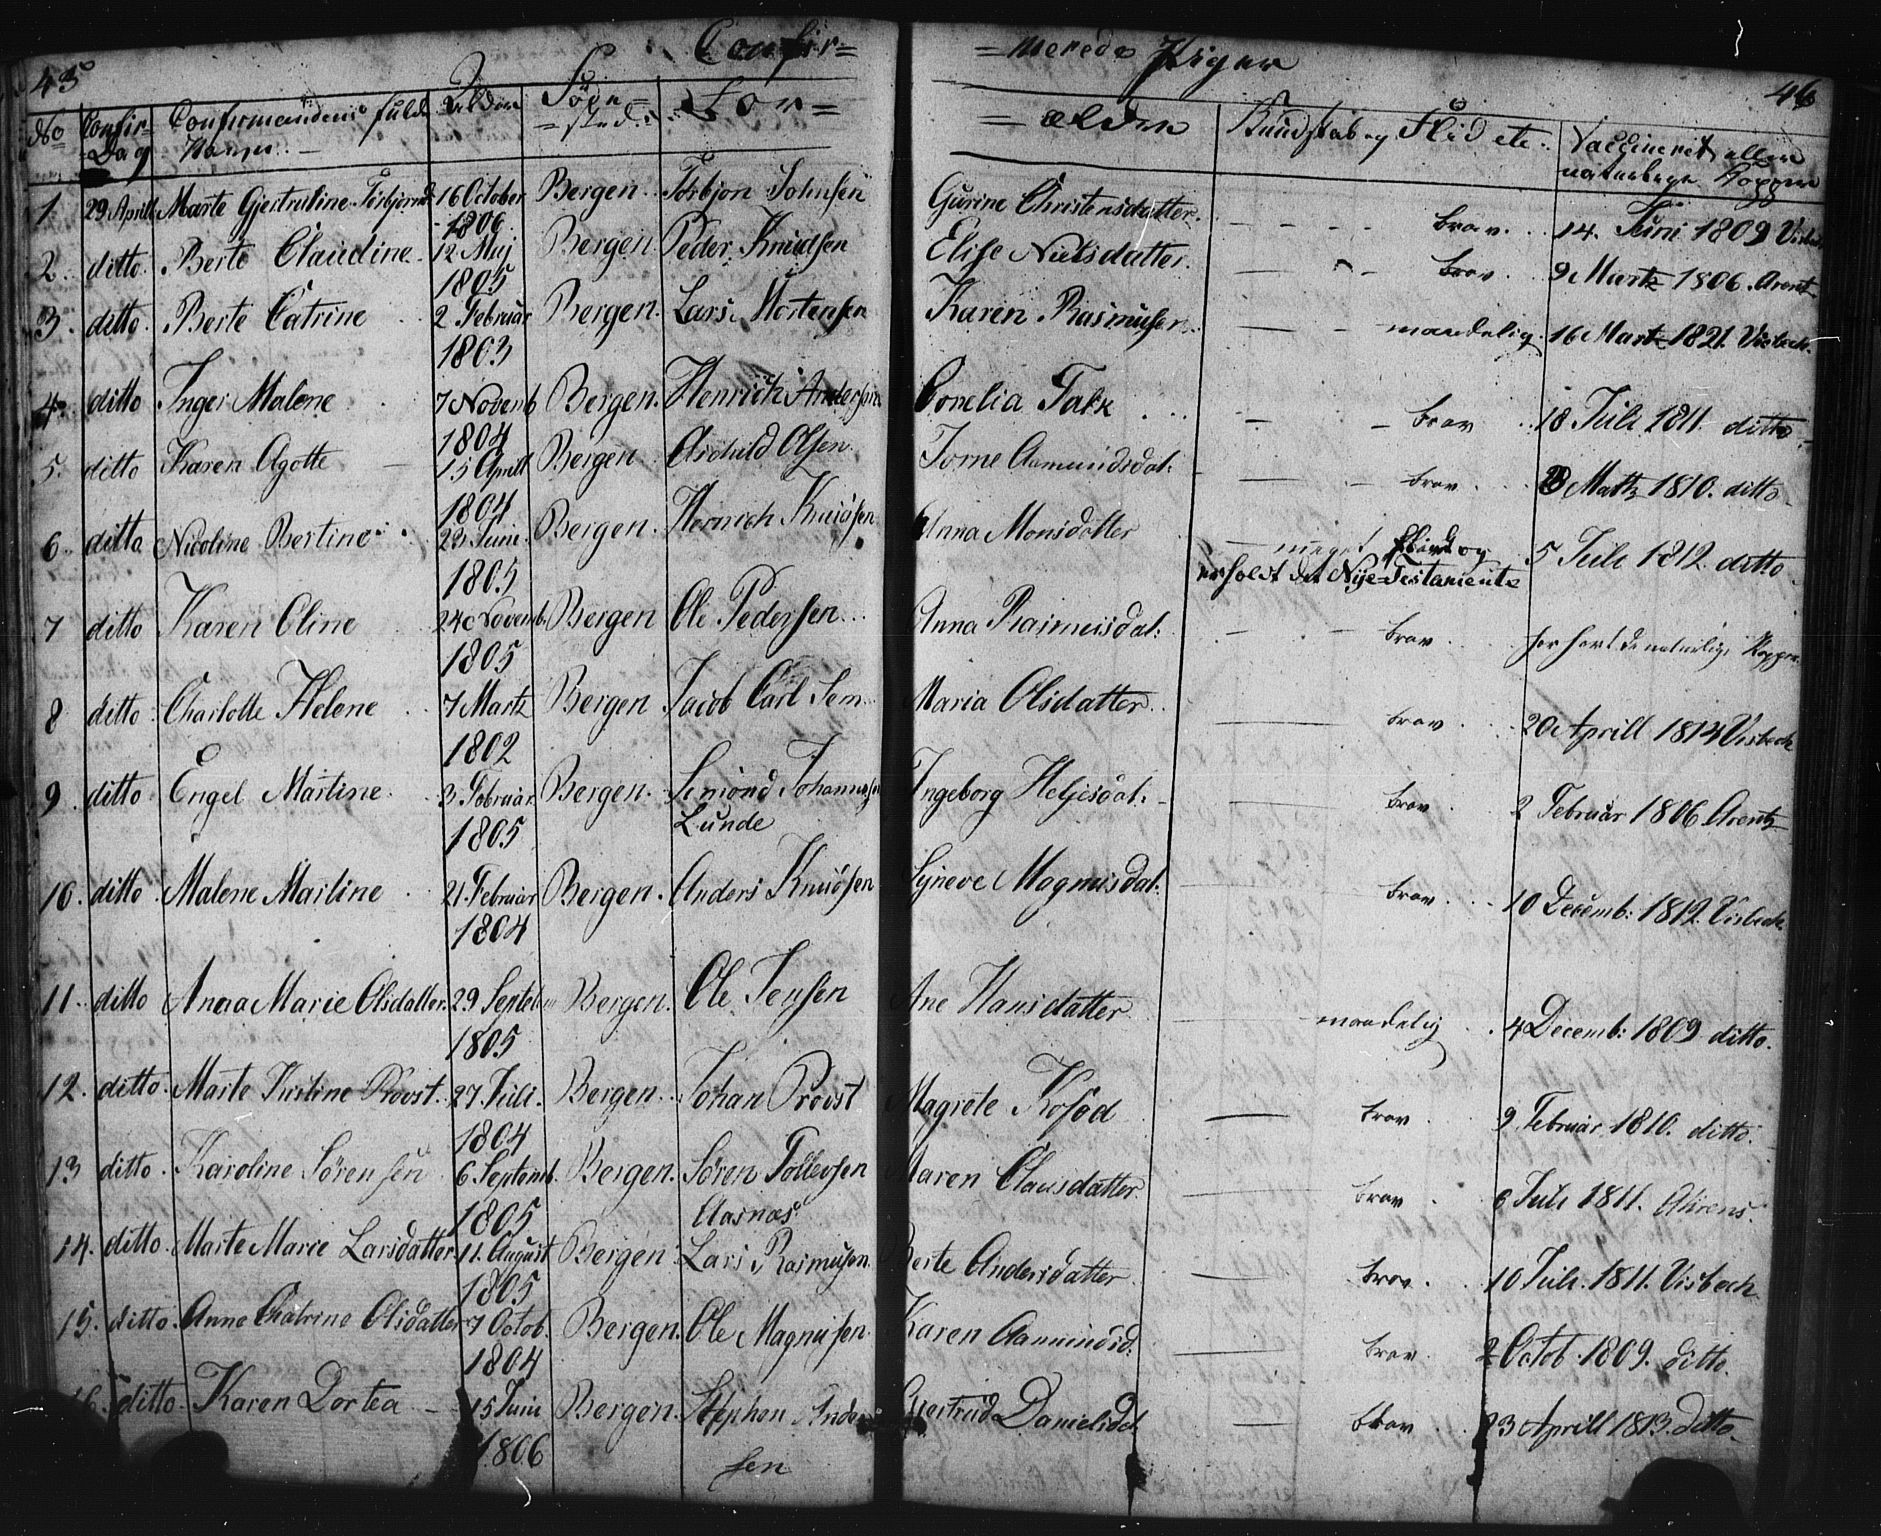 45 Confir= =merede Piger 46
No Confir- Dag Confirmandens fulde Navn Alder Føde= =sted For= =ældre Kundskab og Flid etc. Vaccineret eller naturlige Kopper
1 29 Aprill Marte Gjertrutine Torbjørnd. 16 October Bergen Torbjøn Johnsen Gurine Christensdatter. brav. 14. Juni 1809
1806
2. ditto. Berte Claudine 12 Maj Bergen Peder Knudsen Elise Nielsdatter. brav. 9 Martz 1806. Arentz
1805
3. ditto. Berte Catrine 2 Februar Bergen. Lars Mortensen Karen Rasmusen maadelig. 16 Martz 1821. Visbech.
1803
4. ditto Inger Malene 7 Novemb Bergen. Henrich Andersen Cornelia Falk brav 18 Juli 1811. ditto
1804
5. ditto Karen Agotte 15 Aprill Bergen Aschild Olsen. Torne Aamundsdat: brav Martz 1810. ditto
1804
6. ditto Nicoline Bertine 23 Juni. Bergen. Henrich Knudsen Anna Monsdatter meget flink og 5 Juli 1812. ditto
1805 erholdt det Nye=Testamente
7 ditto Karen Oline 24 Novemb. Bergen Ole Pedersen Anna Rasmusdat: brav har havt de naturlige Kopper.
1805
8 ditto Charlotte Helene 7 Martz Bergen Jacob Carl Sem Maria Olsdatter. brav 20 Aprill 1814 Visbech
1802
9. ditto Engel Martine. 3 Februar Bergen. Simond Johannesen Ingeborg Heljesdat: brav. 2 Februar 1806 Arentz
1805 Lunde
10. ditto. Malene Martine 21. Februar Bergen. Anders Knudsen Syneve Magnusdat: brav. 10 Decemb: 1812. Visbech
1804
11. ditto Anna Marie Olsdatter. 29 Septebr Bergen. Ole Jensen Ane Hansdatter maadelig 4 Decemb: 1809 ditto.
1805
12. ditto. Marte Kirstine Provst. 27. Juli. Bergen. Johan Provst Magrete Kofod brav 9 Februar 1810. ditto.
1804
13 ditto. Karoline Sørensen 6 Septemb. Bergen. Søren Tollevsen Maren Clausdatter brav 6 Juli 1811. Ahrens.
1805 Aasnæs
14. ditto. Marte Marie Larsdatter 11. August Bergen Lars Rasmusen Berte Andersdatter brav. 10 Juli. 1811. Visbech
1805
15. ditto. Anne Chatrine Olsdatter 7 Octob. Bergen. Ole Magnusen Karen Aamundsd: brav. 2 Octob. 1809. ditto.
1804
16. ditto. Karen Dortea 15 Juni Bergen. Stephen Ander Gjertrud Danielsdat. brav 23 Aprill 1813. ditto.
1806 sen